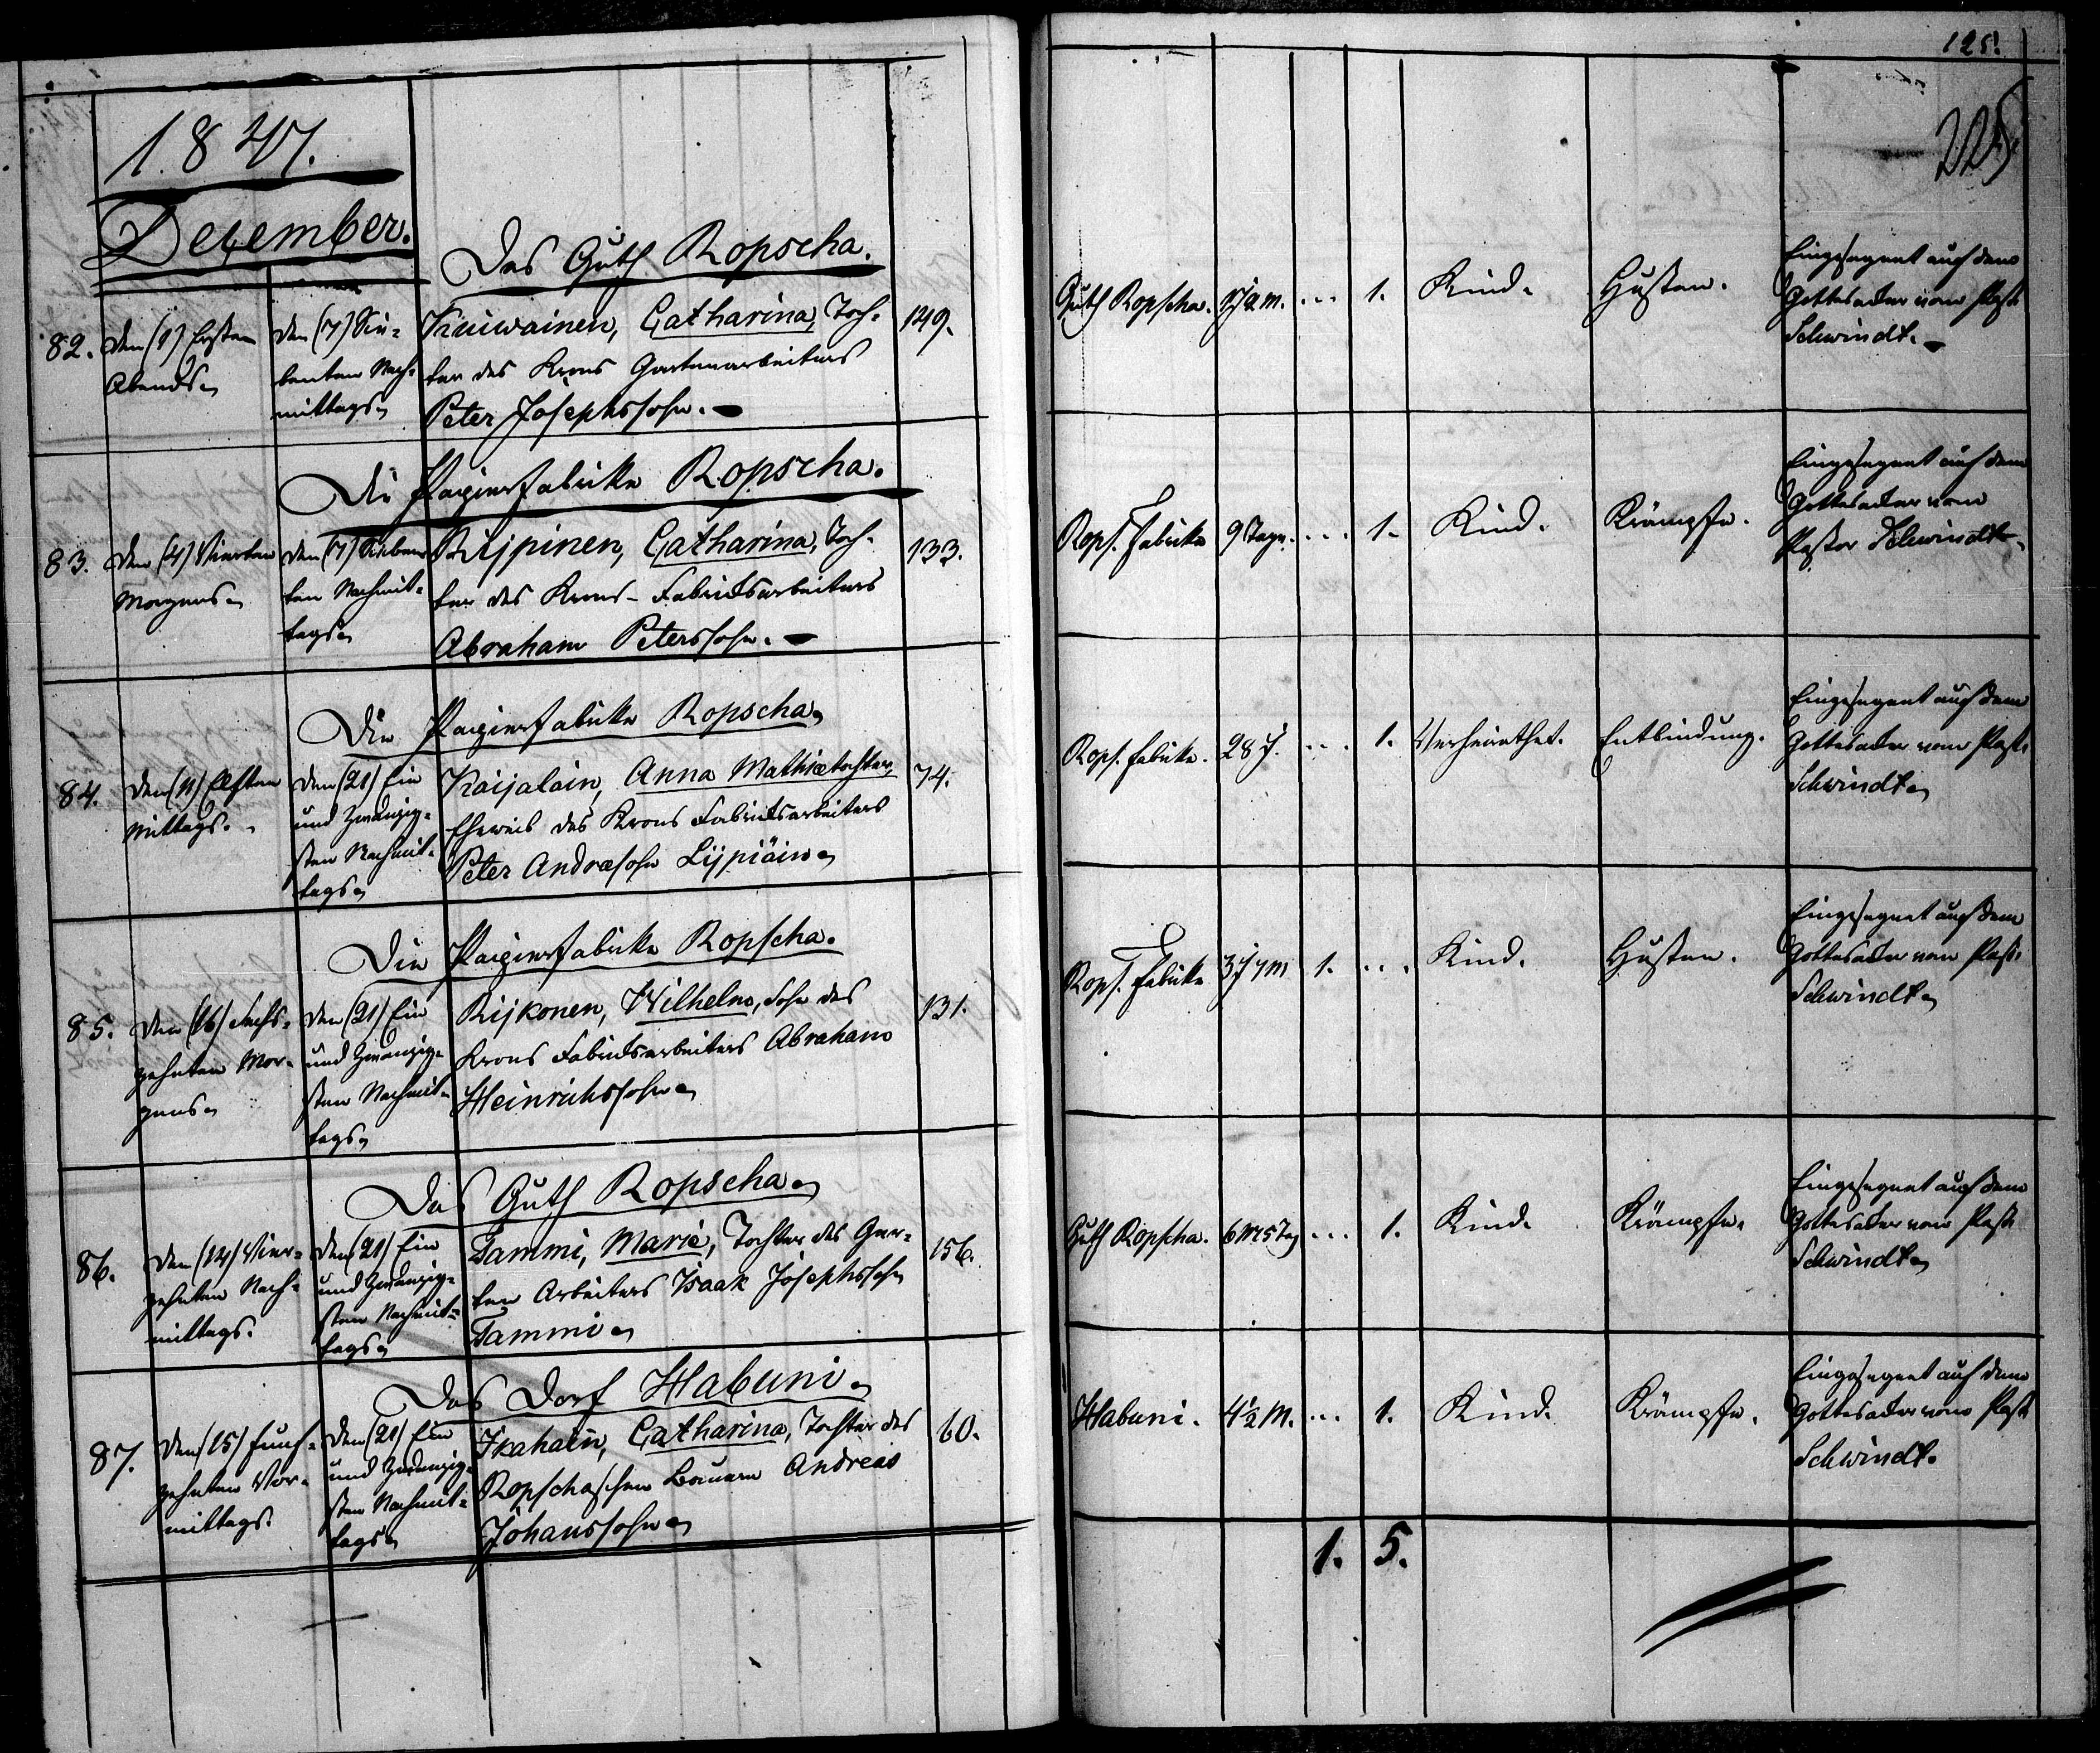 125.
225
1847.
December.
Das Guth Ropscha.
82. den (1) Ersten
Abends.
den (7) Sie-
benten Nach-
mittags.
Kuiwainen, Catharina, Toch-
ter des Krons Gartenarbeiters
Peter Josephssohn.
149.
Guth Ropscha. 1J 2 M. ... 1. Kind. Husten.
Eingesegnet auf dem
Gottesacker vom Past.
Schwindt.
Die Papierfabrike Ropscha.
83. den (4) Vierten
Morgens.
den (7) Sieben-
ten Nachmit-
tags.
Catharina, Toch-
ter des Krons-Fabriksarbeiters
Abraham Peterssohn.
133.
Rops. Fabrike 9 Tage. ... 1. Kind. Krämpfe.
Eingesegnet auf dem
Gottesacker vom
Pastor Schwindt.
Die Papierfabrike Ropscha.
84. den (11) Elften
Mittags.
den (21) Ein
und Zwanzig-
sten Nachmit-
tags.
Kaijalain, Anna Mathiætochter,
Eheweib des Krons Fabriksarbeiters
Peter Andræsohn Lijpiäin.
74.
Rops. Fabrike. 28 J. ... 1. Verheirathet. Entbindung.
Eingesegnet auf dem
Gottesacker vom Past.
Schwindt.
Die Papierfabrike Ropscha.
85. den (16) Sechs-
zehnten Mor-
gens.
den (21) Ein
und Zwanzig-
sten Nachmit-
tags.
Rijkonen, Wilhelm, Sohn des
Krons Fabriksarbeiters Abraham
Heinrichssohn.
131.
Rops. Fabrike 3J 7 M 1. ... Kind. Husten.
Eingesegnet auf dem
Gottesacker vom Past.
Schwindt.
Das Guth Ropscha.
86. den (14) Vier-
zehnten Nach-
mittags.
den (21) Ein
und Zwanzig-
sten Nachmit-
tags.
Tammi, Marie, Tochter des Gar-
ten Arbeiters Isaak Josephssohn
Tammi.
156.
Guth Ropscha. 6 M 5 Tag ... 1. Kind. Krämpfe.
Eingesegnet auf dem
Gottesacker vom Past.
Schwindt.
Das Dorf Habuni.
87. den (15) Funf-
zehnten Vor-
mittags.
den (21) Ein
und Zwanzig-
sten Nachmit-
tags.
Ikahain, Catharina, Tochter des
Ropschaschen Bauern Andreas
Johanssohn.
60.
Habuni. 4½ M. ... 1. Kind. Krämpfe.
Eingesegnet auf dem
Gottesacker vom Past.
Schwindt.
1. 5.